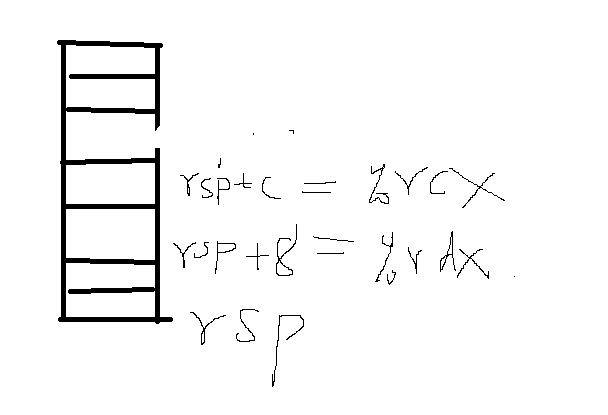 rsp+c = %rcx
rsp+8 = %rdx
rsp